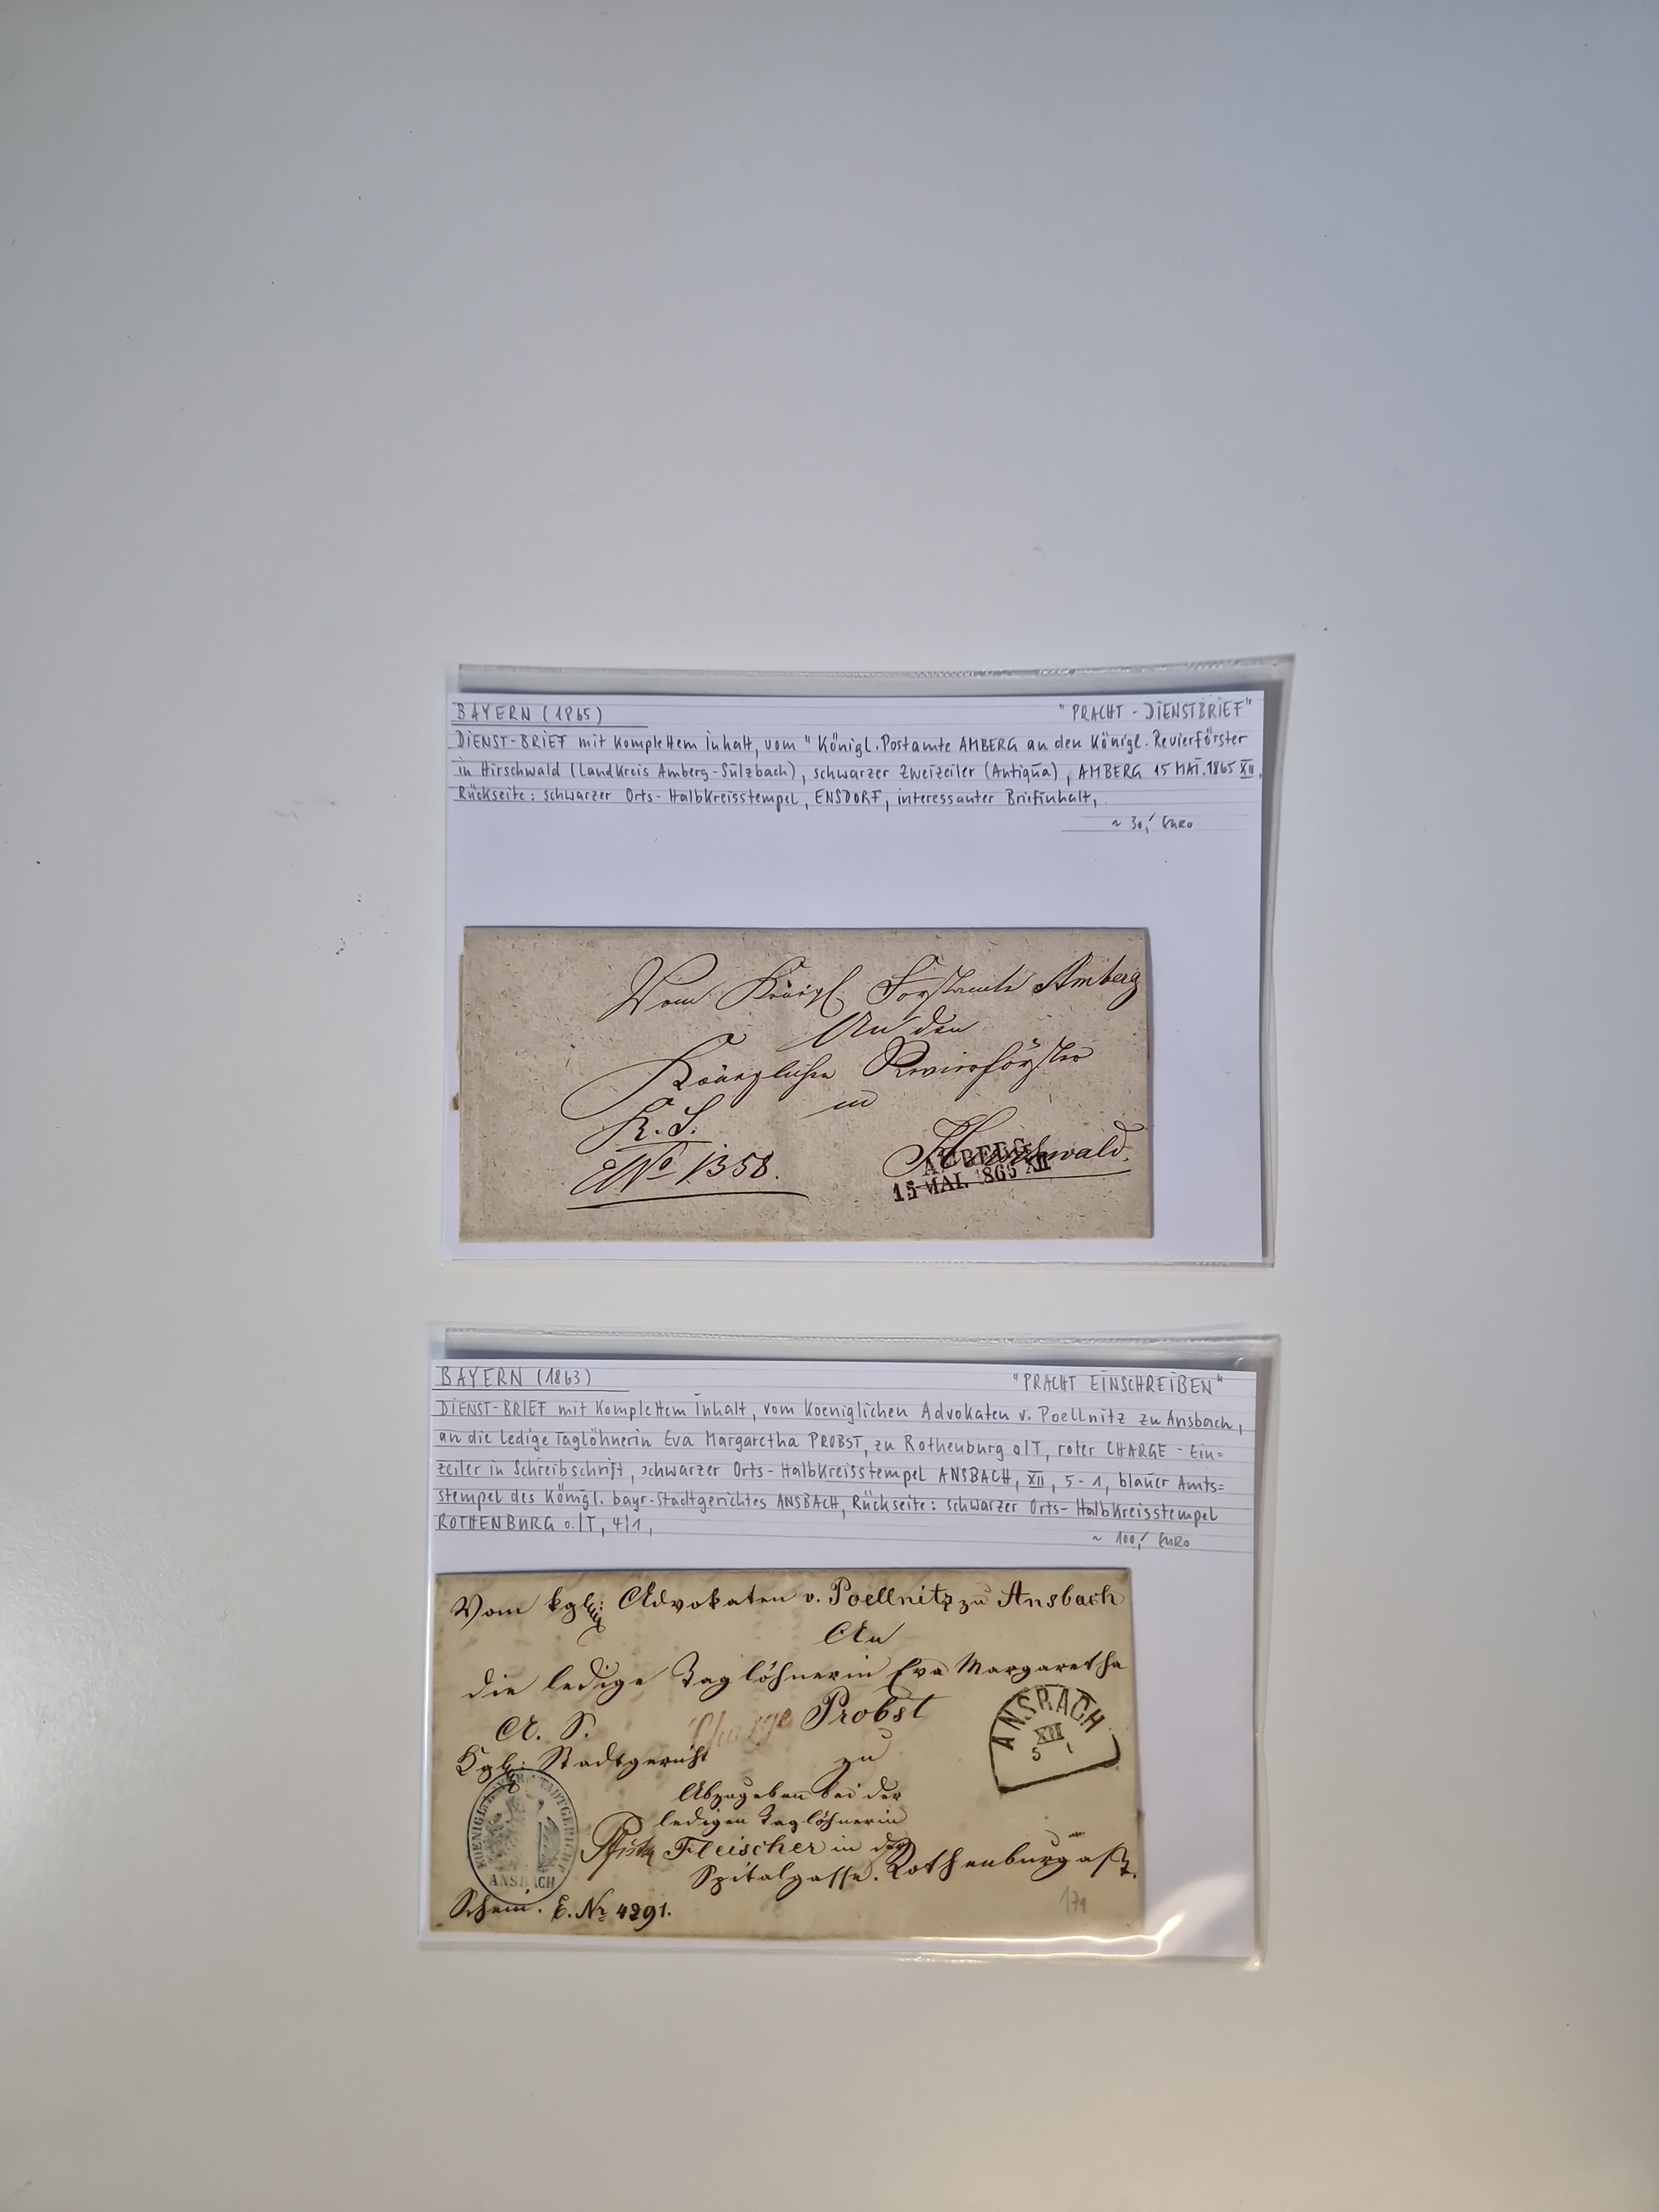 BAYERN (1865) "PRACHT - DIENSTBRIEF"
DIENST-BRIEF mit komplettem Inhalt, vom "Königl. Postamte AMBERG an den Königl. Revierförster
in Hirschwald (Landkreis Amberg-Sulzbach), schwarzer Zweizeiler (Antiqua), AMBERG 15 MAI. 1865 XII,
Rückseite: schwarzer Orts-Halbkreisstempel, ENSDORF, interessanter Briefinhalt,
~ 30,- EURO
Vom Königl. Forstamte Amberg
An den
Königlichen Revierförster
in
R. S.
Hirschwald.
ENo 1358.
AMBERG
15 MAI. 1865 XII
BAYERN (1863) "PRACHT EINSCHREIBEN"
DIENST-BRIEF mit komplettem Inhalt, vom Koeniglichen Advokaten v. Poellnitz zu Ansbach,
an die ledige Taglöhnerin Eva Margaretha PROBST, zu Rothenburg o/T, roter CHARGE - Ein=
zeiler in Schreibschrift, schwarzer Orts-Halbkreisstempel ANSBACH, XII, 5-1, blauer Amts=
stempel des Königl. bayr. Stadtgerichtes ANSBACH, Rückseite: schwarzer Orts-Halbkreisstempel
ROTHENBURG o./T, 4/1,
~ 100,- EURO
Vom kgl: Advokaten v. Poellnitz zu Ansbach
An
die ledige Taglöhnerin Eva Margaretha
Charge Probst
A. S.
zu
Kgl: Stadtgericht
ANSBACH
XII
5 1
Abzugeben bei der
ledigen Taglöhnerin
Fleischer in der
Spitalgasse. Rothenburg a/T.
KOENIGL. BAYER. STADTGERICHT
ANSBACH
Schein. E. Nr. 4291.
171